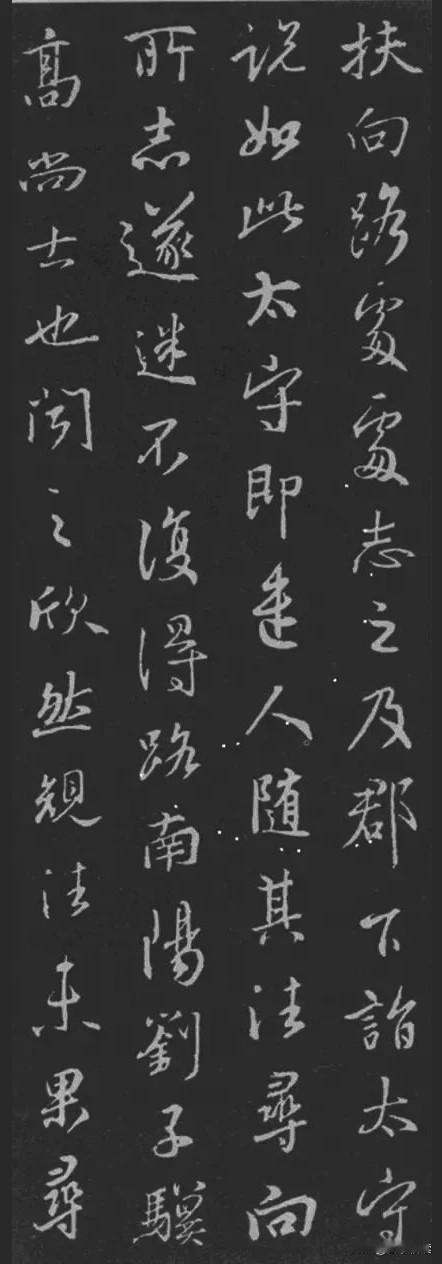 扶向路處處志之及郡下詣太守
説如此太守即遣人随其往尋向
所志遂迷不復得路南陽劉子驥
高尚士也聞之欣然親往未果尋